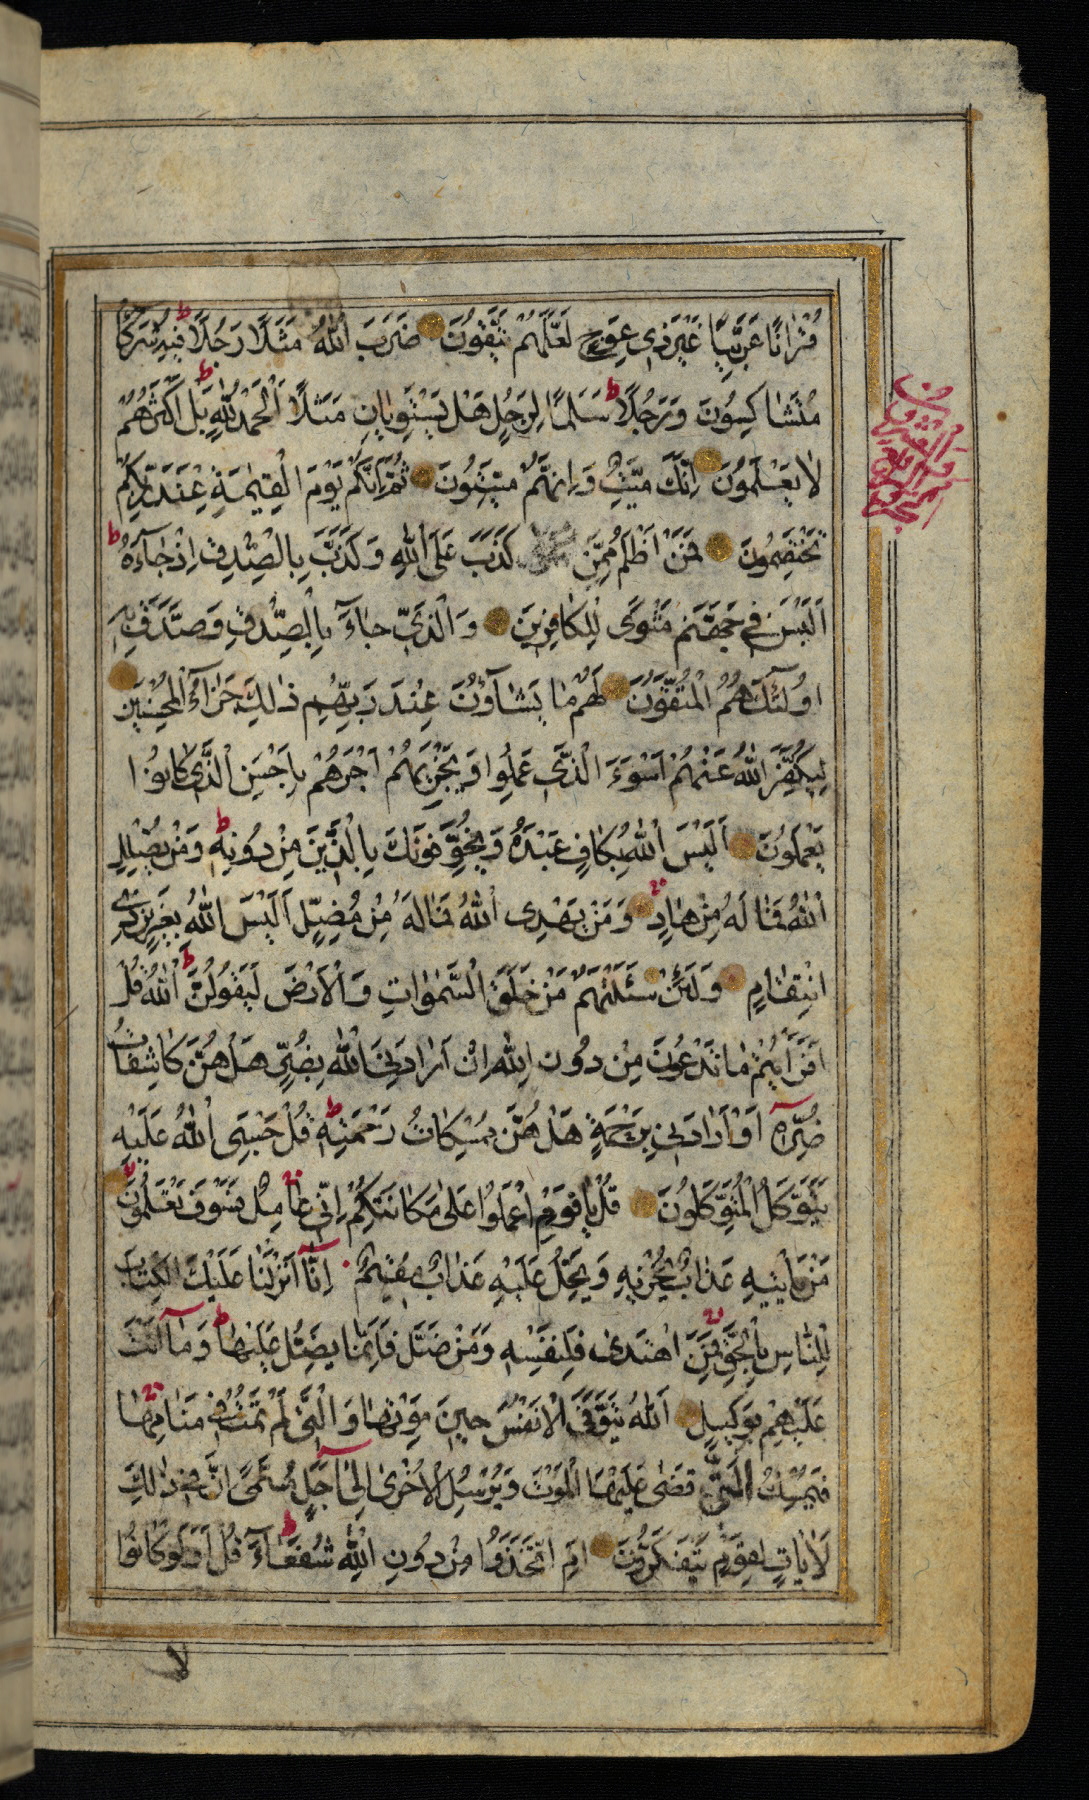 قُرْاٰنًا عَرَبِيًّا غَيْرَ ذِي عِوَجٍ لَعَلَّهُمْ يَتَّقُونَ ضَرَبَ اللّٰهُ مَثَلًا رَجُلًا فِيهِ شُرَكَاءُ
مُتَشَاكِسُونَ وَرَجُلًا سَلَمًا لِرَجُلٍ هَلْ يَسْتَوِيَانِ مَثَلًا اَلْحَمْدُ لِلّٰهِ بَلْ اَكْثَرُهُمْ
لَا يَعْلَمُونَ اِنَّكَ مَيِّتٌ وَاِنَّهُمْ مَيِّتُونَ ثُمَّ اِنَّكُمْ يَوْمَ الْقِيٰمَةِ عِنْدَ رَبِّكُمْ
تَخْتَصِمُونَ فَمَنْ اَظْلَمُ مِمَّنْ كَذَبَ عَلَى اللّٰهِ وَكَذَّبَ بِالصِّدْقِ اِذْ جَآءَهُ
اَلَيْسَ فِي جَهَنَّمَ مَثْوًى لِلْكَافِرِينَ وَالَّذِي جَآءَ بِالصِّدْقِ وَصَدَّقَ بِهِ
اُولٰئِكَ هُمُ الْمُتَّقُونَ لَهُمْ مَا يَشَاؤُنَ عِنْدَ رَبِّهِمْ ذٰلِكَ جَزَآءُ الْمُحْسِنِينَ
لِيُكَفِّرَ اللّٰهُ عَنْهُمْ اَسْوَءَ الَّذِي عَمِلُوا وَيَجْزِيَهُمْ اَجْرَهُمْ بِاَحْسَنِ الَّذِي كَانُوا
يَعْمَلُونَ اَلَيْسَ اللّٰهُ بِكَافٍ عَبْدَهُ وَيُخَوِّفُونَكَ بِالَّذِينَ مِنْ دُونِهِ وَمَنْ يُضْلِلِ
اللّٰهُ فَمَا لَهُ مِنْ هَادٍ وَمَنْ يَهْدِى اللّٰهُ فَمَا لَهُ مِنْ مُضِلٍّ اَلَيْسَ اللّٰهُ بِعَزِيزٍ ذِي
انْتِقَامٍ وَلَئِنْ سَئَلْتَهُمْ مَنْ خَلَقَ السَّمٰوَاتِ وَالْاَرْضَ لَيَقُولُنَّ اللّٰهُ قُلْ
اَفَرَاَيْتُمْ مَا تَدْعُونَ مِنْ دُونِ اللّٰهِ اِنْ اَرَادَنِيَ اللّٰهُ بِضُرٍّ هَلْ هُنَّ كَاشِفَاتُ
ضُرِّهِ اَوْ اَرَادَنِي بِرَحْمَةٍ هَلْ هُنَّ مُمْسِكَاتُ رَحْمَتِهِ قُلْ حَسْبِيَ اللّٰهُ عَلَيْهِ
يَتَوَكَّلُ الْمُتَوَكِّلُونَ قُلْ يَا قَوْمِ اعْمَلُوا عَلٰى مَكَانَتِكُمْ اِنِّي عَامِلٌ فَسَوْفَ تَعْلَمُونَ
مَنْ يَاْتِيهِ عَذَابٌ يُخْزِيهِ وَيَحِلُّ عَلَيْهِ عَذَابٌ مُقِيمٌ اِنَّآ اَنْزَلْنَا عَلَيْكَ الْكِتَابَ
لِلنَّاسِ بِالْحَقِّ فَمَنِ اهْتَدٰى فَلِنَفْسِهِ وَمَنْ ضَلَّ فَاِنَّمَا يَضِلُّ عَلَيْهَا وَمَآ اَنْتَ
عَلَيْهِمْ بِوَكِيلٍ اَللّٰهُ يَتَوَفَّى الْاَنْفُسَ حِينَ مَوْتِهَا وَالَّتِي لَمْ تَمُتْ فِي مَنَامِهَا
فَيُمْسِكُ الَّتِي قَضٰى عَلَيْهَا الْمَوْتَ وَيُرْسِلُ الْاُخْرٰى اِلٰىٓ اَجَلٍ مُسَمًّى اِنَّ فِي ذٰلِكَ
لَاٰيَاتٍ لِقَوْمٍ يَتَفَكَّرُونَ اَمِ اتَّخَذُوا مِنْ دُونِ اللّٰهِ شُفَعَآءَ قُلْ اَوَلَوْ كَانُوا
لا